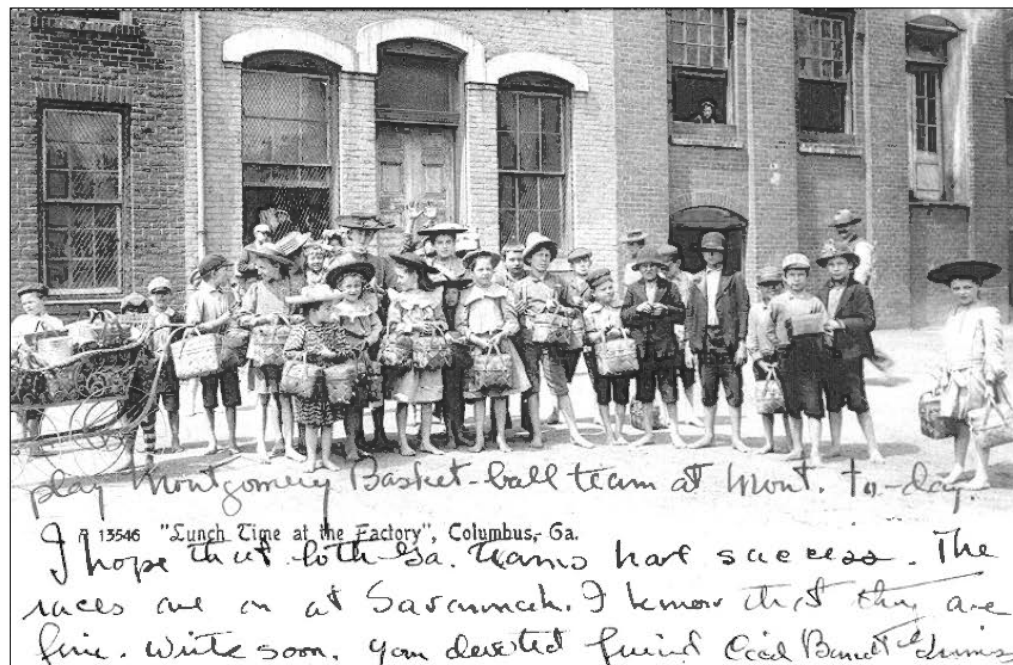 play Montgomery Basket-ball team at Mont. to-day.
A 13546 "Lunch Time at the Factory", Columbus, Ga.
I hope that both Ga. teams have success. The
races are on at Savannah. I know that they are
fine. Write soon. your devoted friend